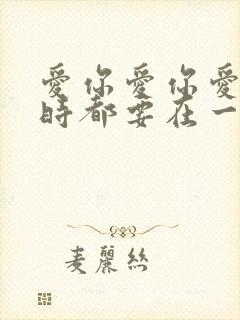 愛你愛你愛
時都要在一
麦麗絲